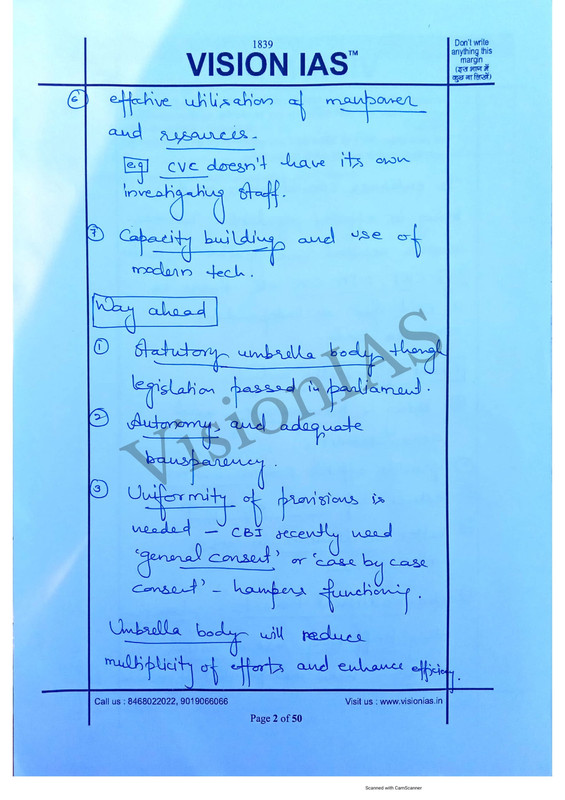 1839
VISION IAS™
Don't write
anything this
margin
(इस भाग में
कुछ ना लिखें)
⑥ effective utilisation of manpower
and resources.
eg CVC doesn't have its own
investigating staff.
⑦ Capacity building and use of
modern tech.
Way ahead
① Statutory umbrella body though
legislation passed in parliament.
② Autonomy and adequate
transparency.
③ Uniformity of provisions is
needed – CBI recently need
'general consent' or 'case by case
consent' – hampers functioning.
Umbrella body will reduce
multiplicity of efforts and enhance efficiency.
VisionIAS
Call us : 8468022022, 9019066066
Visit us : www.visionias.in
Page 2 of 50
Scanned with CamScanner